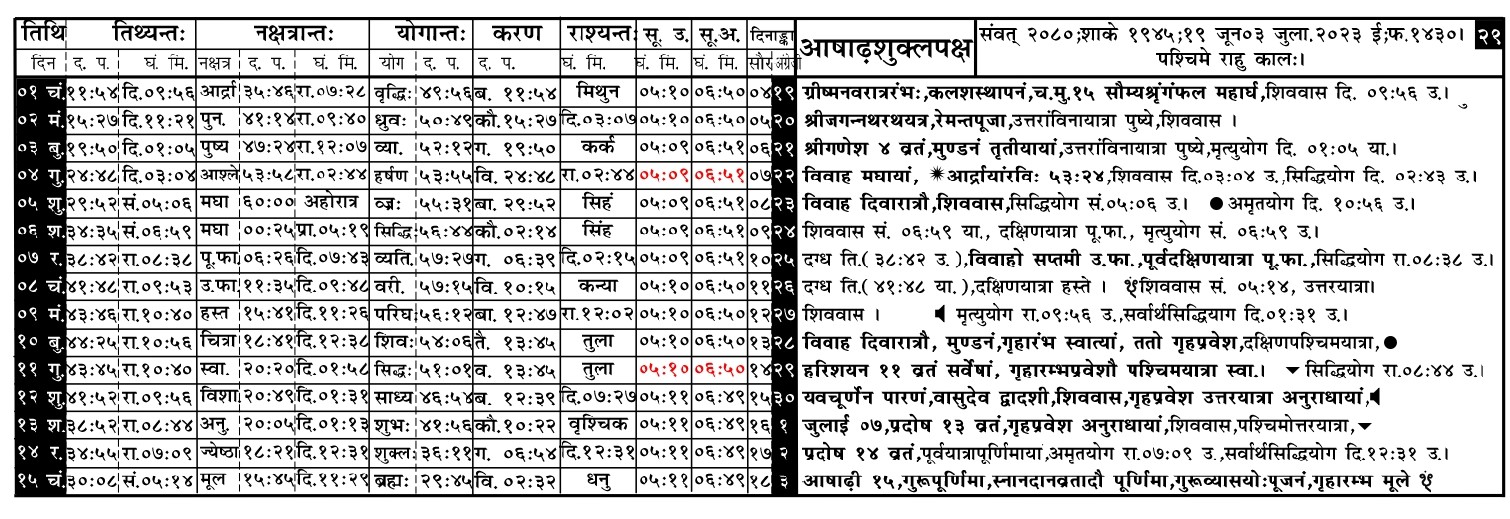 तिथि तिथ्यन्तः नक्षत्रान्तः योगान्तः करण राश्यन्तः सू. उ. सू.अ. दिनाङ्का आषाढ़शुक्लपक्ष संवत् २०८०;शाके १९४५;१९ जून०३ जुला.२०२३ ई;फ.१४३०। २९
दिन द. प. घं. मि. नक्षत्र द. प. घं. मि. योग द. प. द. प. घं. मि. घं. मि. घं. मि. सौर अंग्रेजी पश्चिमे राहु कालः।
०१ चं. ११:५४ दि.०९:५६ आर्द्रा ३५:४६ रा.०७:२८ वृद्धिः ४९:५६ ब. ११:५४ मिथुन ०५:१० ०६:५० ०४ १९ ग्रीष्मनवरात्ररंभः,कलशस्थापनं,च.मु.१५ सौम्यश्रृंगंफल महार्घ,शिववास दि. ०९:५६ उ.।
०२ मं. १५:२७ दि.११:२१ पुन. ४१:१४ रा.०९:४० ध्रुवः ५०:४९ कौ.१५:२७ दि.०३:०७ ०५:१० ०६:५० ०५ २० श्रीजगन्नथरथयत्र,रेमन्तपूजा,उत्तरांविनायात्रा पुष्ये,शिववास ।
०३ बु. १९:५० दि.०१:०५ पुष्य ४७:२४ रा.१२:०७ व्या. ५२:१२ ग. १९:५० कर्क ०५:०९ ०६:५१ ०६ २१ श्रीगणेश ४ व्रतं,मुण्डनं तृतीयायां,उत्तरांविनायात्रा पुष्ये,मृत्युयोग दि. ०१:०५ या.।
०४ गु. २४:४८ दि.०३:०४ आश्ले ५३:५८ रा.०२:४४ हर्षण ५३:५५ वि. २४:४८ रा.०२:४४ ०५:०९ ०६:५१ ०७ २२ विवाह मघायां, ✴आर्द्रायांरविः ५३:२४,शिववास दि.०३:०४ उ.,सिद्धियोग दि. ०२:४३ उ.।
०५ शु. २९:५२ सं.०५:०६ मघा ६०:०० अहोरात्र वज्रः ५५:३१ बा. २९:५२ सिहं ०५:०९ ०६:५१ ०८ २३ विवाह दिवारात्रौ,शिववास,सिद्धियोग सं.०५:०६ उ.। ● अमृतयोग दि. १०:५६ उ.।
०६ श. ३४:३५ सं.०६:५९ मघा ००:२५ प्रा.०५:१९ सिद्धि ५६:४४ कौ.०२:१४ सिंह ०५:०९ ०६:५१ ०९ २४ शिववास सं. ०६:५९ या., दक्षिणयात्रा पू.फा., मृत्युयोग सं. ०६:५९ उ.।
०७ र. ३८:४२ रा.०८:३८ पू.फा ०६:२६ दि.०७:४३ व्यति. ५७:२७ ग. ०६:३९ दि.०२:१५ ०५:०९ ०६:५१ १० २५ दग्ध ति.( ३८:४२ उ.),विवाहो सप्तमी उ.फा.,पूर्वदक्षिणयात्रा पू.फा.,सिद्धियोग रा.०८:३८ उ.।
०८ चं. ४१:४८ रा.०९:५३ उ.फा ११:३५ दि.०९:४८ वरी. ५७:१५ वि. १०:१५ कन्या ०५:१० ०६:५० ११ २६ दग्ध ति.( ४१:४८ या.),दक्षिणयात्रा हस्ते । शिववास सं. ०५:१४, उत्तरयात्रा।
०९ मं. ४३:४६ रा.१०:४० हस्त १५:४१ दि.११:२६ परिघः ५६:१२ बा. १२:४७ रा.१२:०२ ०५:१० ०६:५० १२ २७ शिववास । ◀ मृत्युयोग रा.०९:५६ उ.,सर्वार्थसिद्धियाग दि.०१:३१ उ.।
१० बु. ४४:२५ रा.१०:५६ चित्रा १८:४१ दि.१२:३८ शिवः ५४:०६ तै. १३:४५ तुला ०५:१० ०६:५० १३ २८ विवाह दिवारात्रौ, मुण्डनं,गृहारंभ स्वात्यां, ततो गृहप्रवेश,दक्षिणपश्चिमयात्रा,●
११ गु. ४३:४५ रा.१०:४० स्वा. २०:२० दि.०१:५८ सिद्धः ५१:०१ व. १३:४५ तुला ०५:१० ०६:५० १४ २९ हरिशयन ११ व्रतं सर्वेषां, गृहारम्भप्रवेशौ पश्चिमयात्रा स्वा.। ▼ सिद्धियोग रा.०८:४४ उ.।
१२ शु. ४१:५२ रा.०९:५६ विशा. २०:४९ दि.०१:३१ साध्य ४६:५४ ब. १२:३९ दि.०७:२७ ०५:११ ०६:४९ १५ ३० यवचूर्णेन पारणं,वासुदेव द्वादशी,शिववास,गृहप्रवेश उत्तरयात्रा अनुराधायां,◀
१३ श. ३८:५२ रा.०८:४४ अनु. २०:०५ दि.०१:१३ शुभः ४१:५६ कौ.१०:२२ वृश्चिक ०५:११ ०६:४९ १६ १ जुलाई ०७,प्रदोष १३ व्रतं,गृहप्रवेश अनुराधायां,शिववास,पश्चिमोत्तरयात्रा,▼
१४ र. ३४:५५ रा.०७:०९ ज्येष्ठा १८:२१ दि.१२:३१ शुक्लः ३६:११ ग. ०६:५४ दि.१२:३१ ०५:११ ०६:४९ १७ २ प्रदोष १४ व्रतं,पूर्वयात्रापूर्णिमाया,अमृतयोग रा.०७:०९ उ.,सर्वार्थसिद्धियोग दि.१२:३१ उ.।
१५ चं. ३०:०८ सं.०५:१४ मूल १५:४५ दि.११:२९ ब्रह्मः २९:४५ वि. ०२:३२ धनु ०५:११ ०६:४९ १८ ३ आषाढ़ी १५,गुरूपूर्णिमा,स्नानदानव्रतादौ पूर्णिमा,गुरूव्यासयोःपूजनं,गृहारम्भ मूले